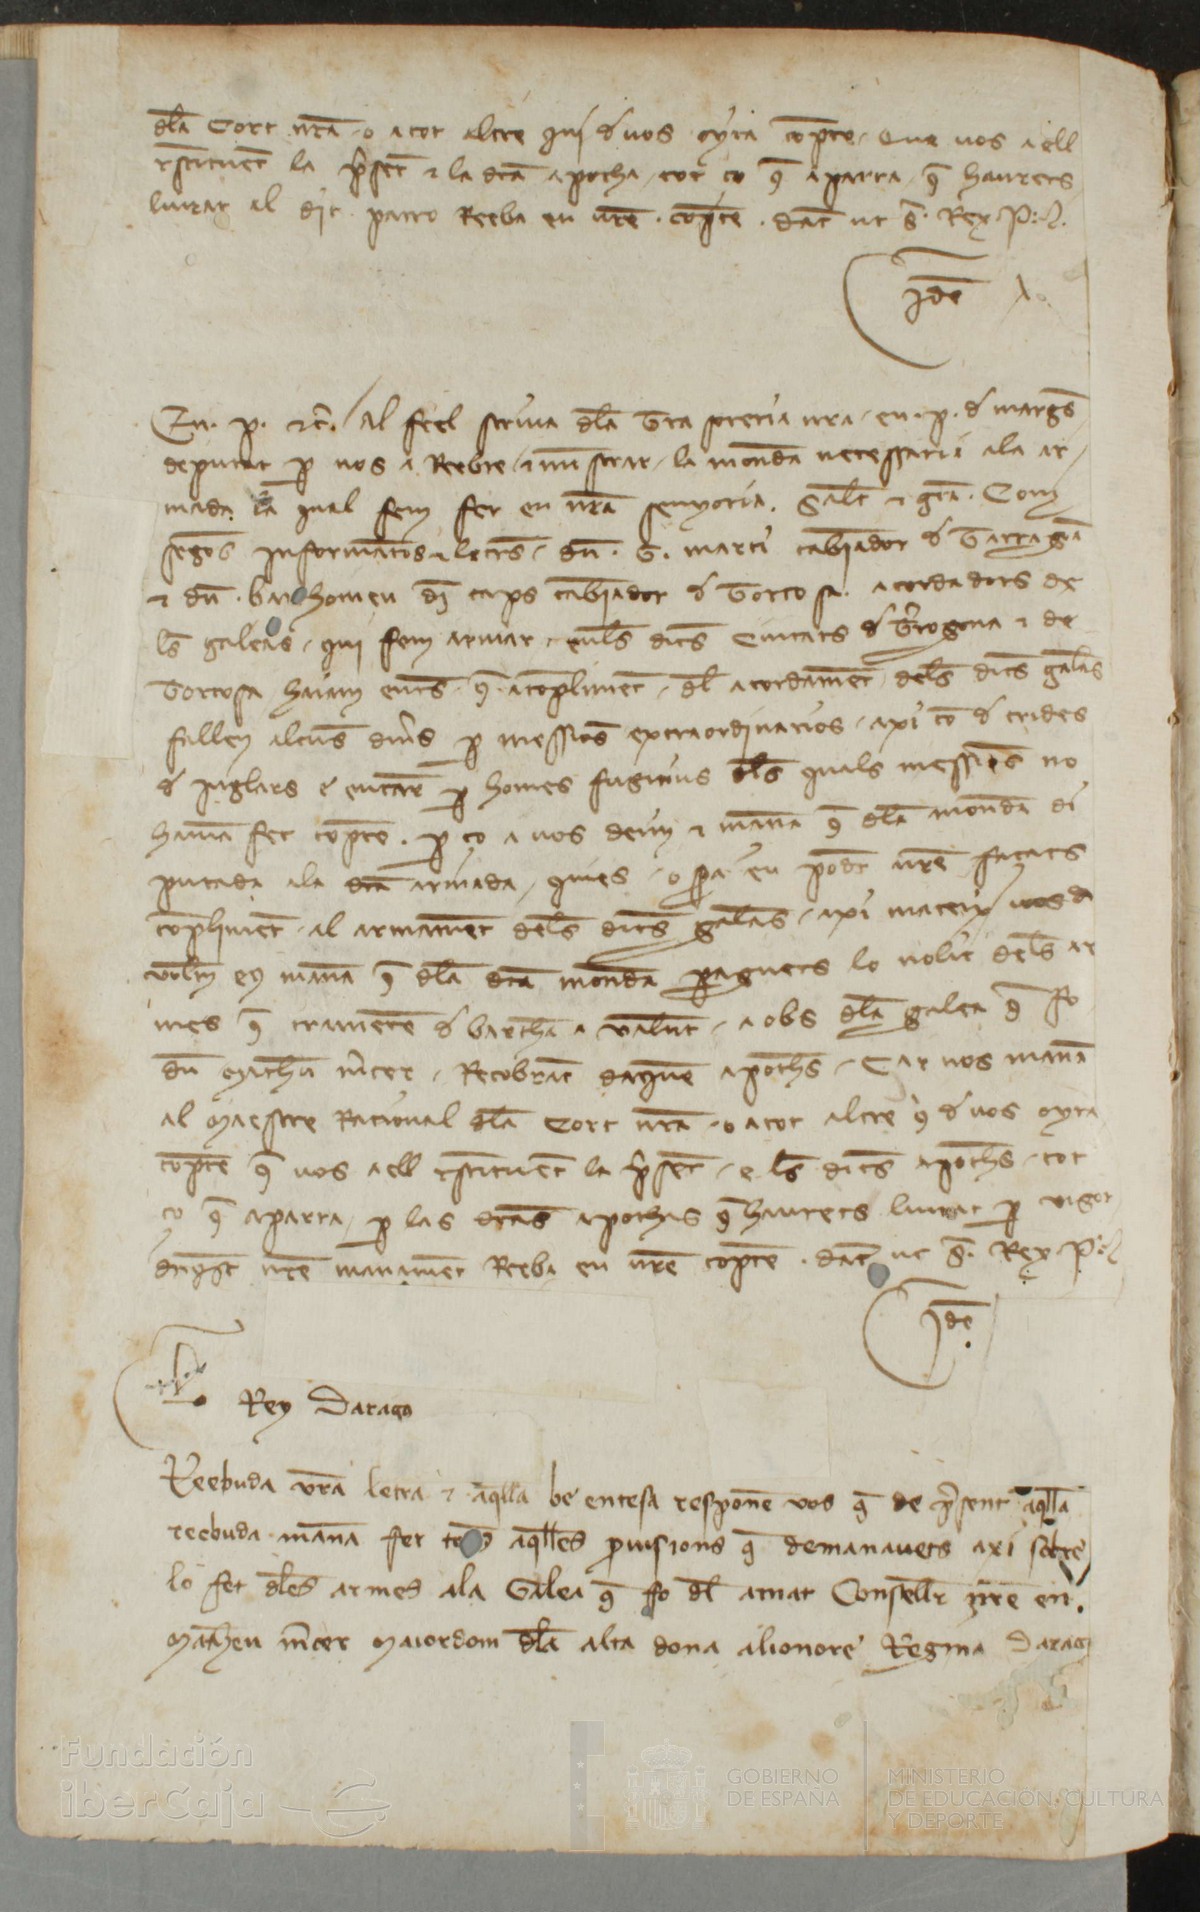 dla Cort nra o a tot altre qui d vos oyra copte que vos a ell
rstituent la psēt & la dta apocha tot ço q̄ aparra q̄ haurets
liurat al dit patro Reeba en vre copte. dat ut S. Rex P.
Idē
En. p. &c. Al feel scriva dla Tra sreria nra en. p. d margēs
deputat p nos a Reebre & mīstrar la moneda necessaria ala ar
mada la qual fem fer en nra senyoria. Salt & gra. Com
segōs informatiōs & letrēs dn. G. marti cābiador d Tarragā
& dn. barthomeu d caps cābiador d Tortosa acordadors de
ls galeas qui fem armar enls dites Ciutats d Trogona & de
Tortosa haiam entēs q̄ a cōpliment dl acordament dels dites galeas
fallen alcūs dinēs p messiōs extraordinarios axi cō d crides
d juglars e encare p homes fugitius dls quals messiōs no
haviā fet copte. p ço a vos deym & manā q̄ dla moneda di
putada ala dta armada q̄ es o sra en poder vre façats
cōpliment al armament dels dites galeas axi mateix vos d
volem ey manā q̄ dla dta moneda paguets lo nolit dels ar
mes q̄ trametē d barchā a valent a obs dla galea q̄ fo
dn matheu mcer Recobrāt daquē apochēs Car nos manā
al Maestre Racional dla Cort nra o a tot altre q̄ d vos oyra
copte q̄ vos a ell rstituent la psēt e ls dites apochēs tot
ço q̄ aparra p las dtas apochas q̄ haurets liurat p vigor
daqst nre manament Reeba en vre copte. dat ut S. Rex P.
Idē.
Lo Rey Darago
Reebuda vra letra & aqlla be entesa responē vos q̄ de psent aqlla
reebuda manā fer totes aqlles pvisions q̄ demanavets axi sobre
lo fet dles armes ala Galea q̄ fo dl amat Consellr nre en.
Matheu mcer Maiordom dla alta dona alionore Regina Darago
Fundación
iberCaja
GOBIERNO
DE ESPAÑA
MINISTERIO
DE EDUCACIÓN, CULTURA
Y DEPORTE